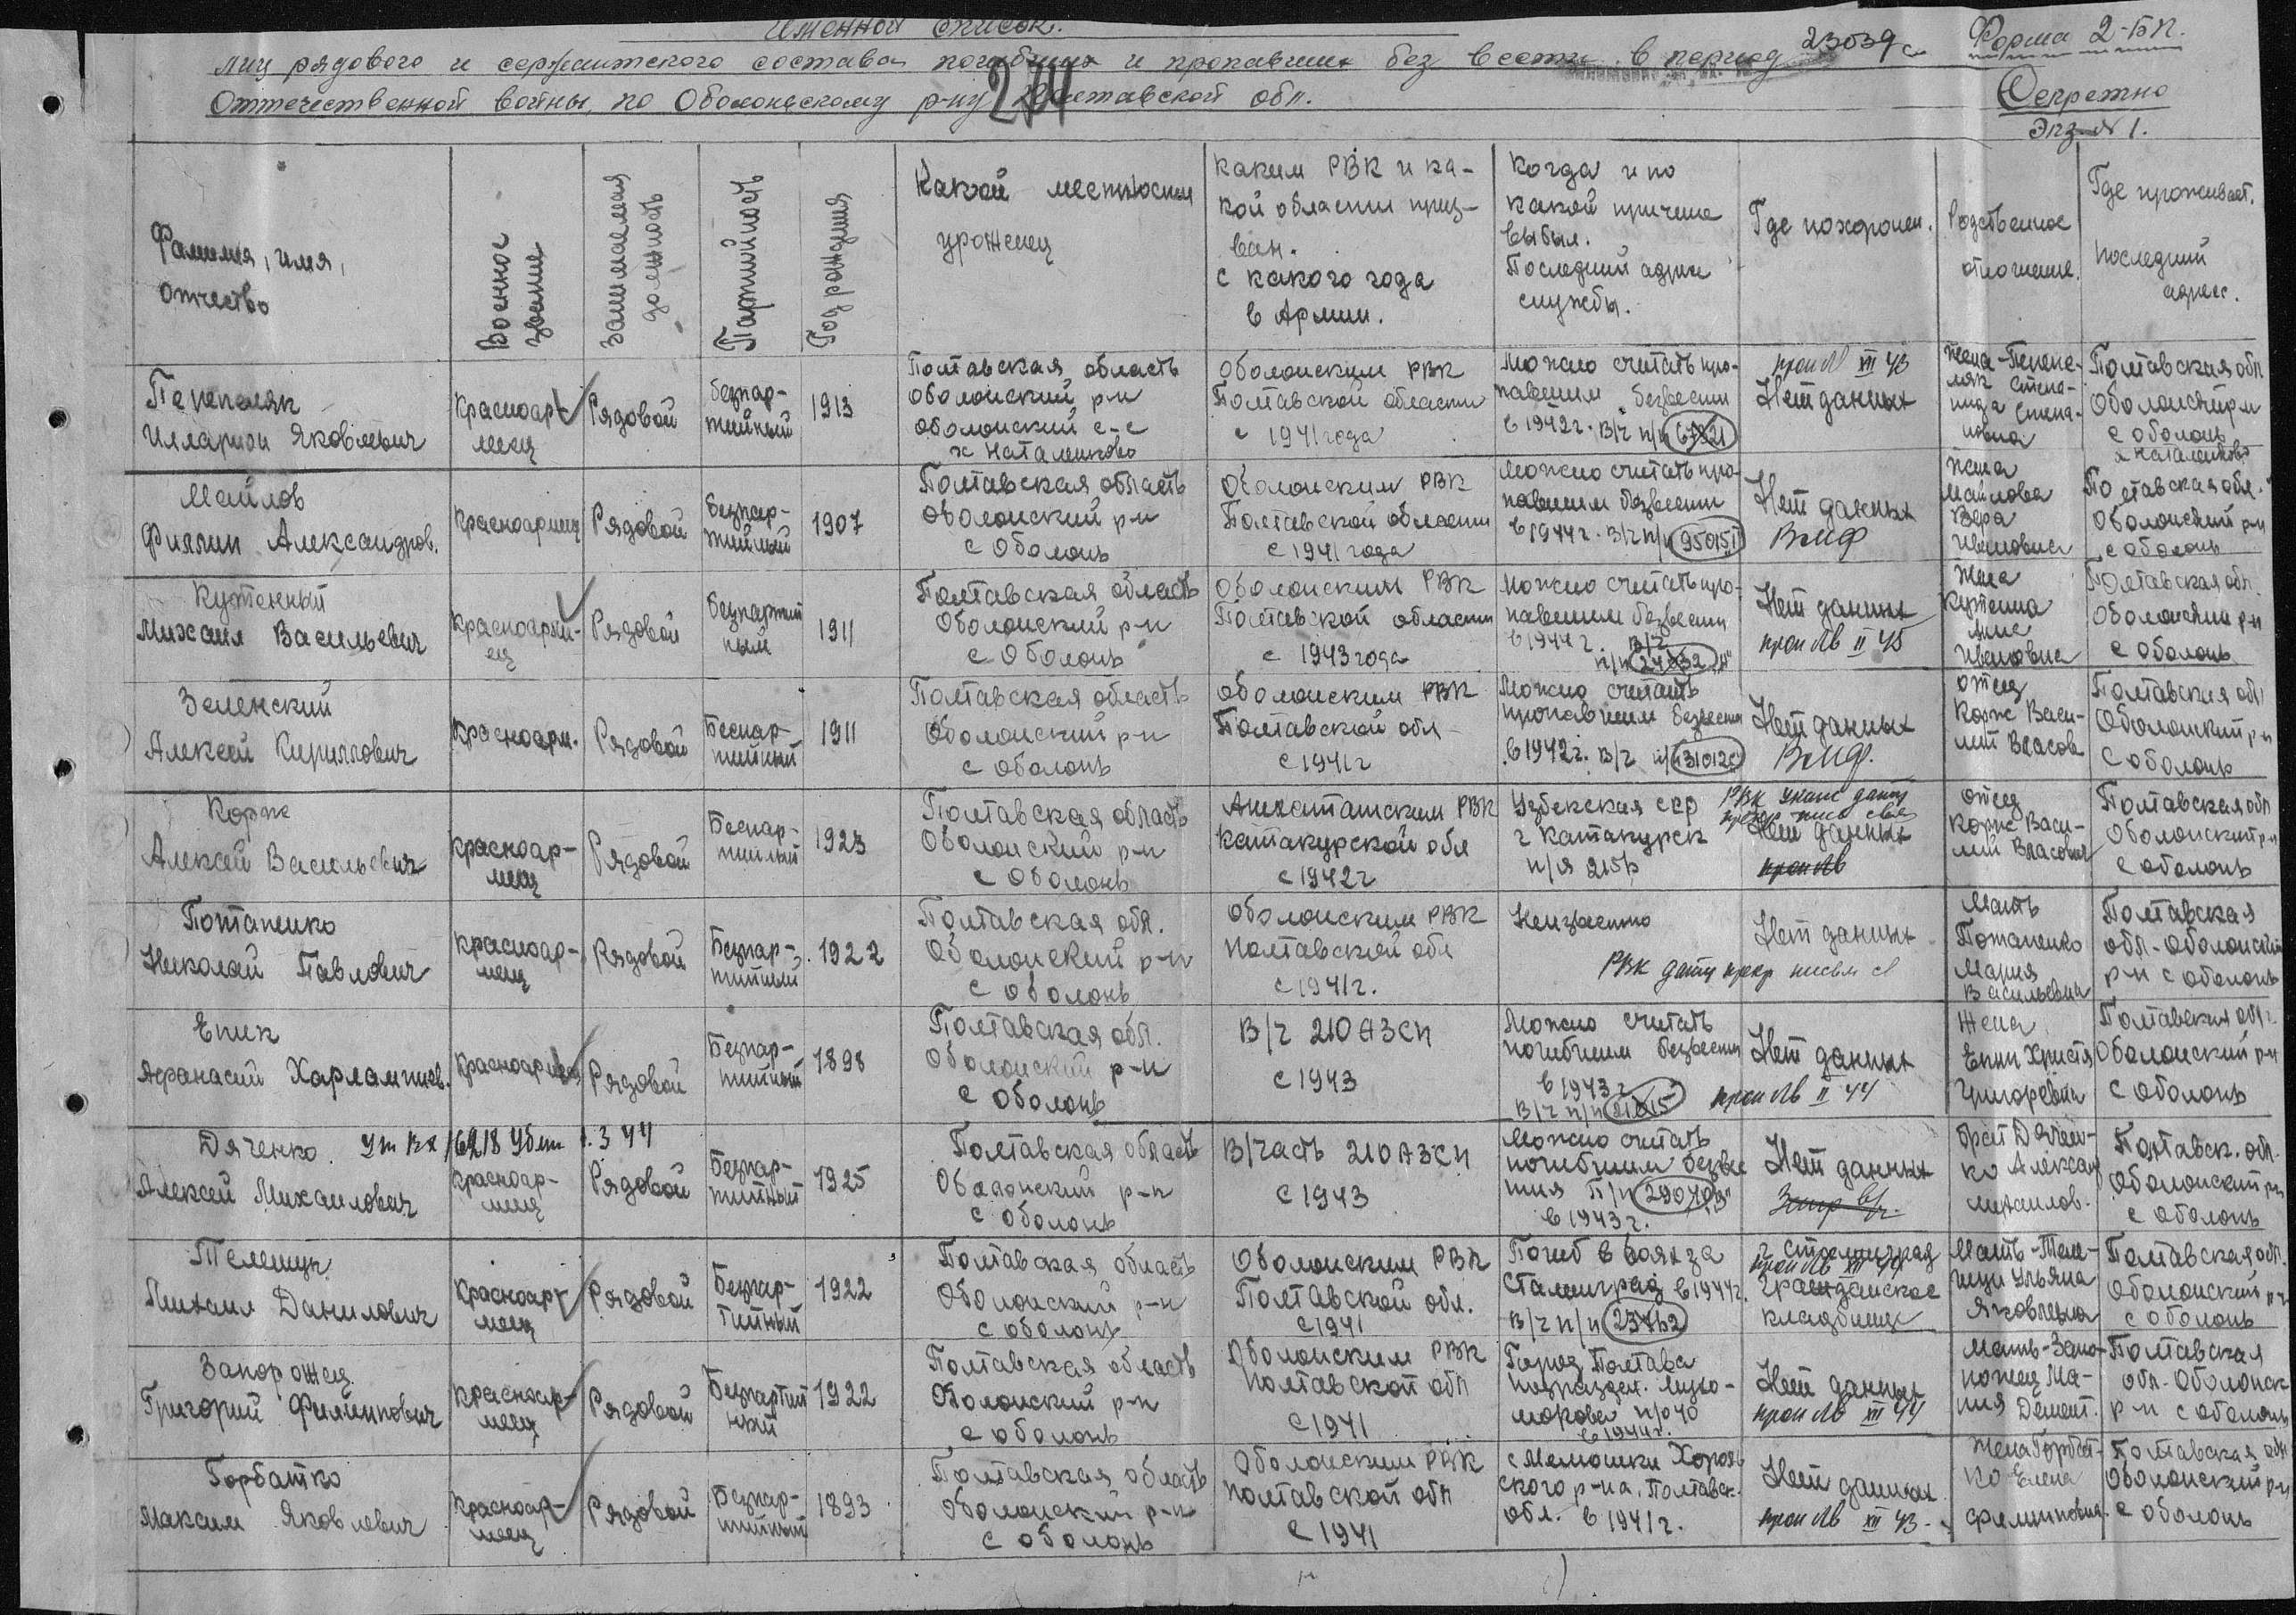 Именной список.
лиц рядового и сержантского состава погибших и пропавших без вести в период
23039с
Форма 2-БП.
Оттечественной войны, по Оболонскому р-ну Полтавской обл.
274
Секретно
Экз. № 1.
Фамилия, имя, отчество
Военное звание
Занимаемая должность
Партийность
Год рождения
Какой местности уроженец
Каким РВК и какой области призван.
с какого года в Армии.
Когда и по какой причине выбыл.
Последний адрес службы.
Где похоронен.
Родственное отношение.
Где проживает.
Последний адрес.
Перепеляк
Илларион Яковлевич
Красноармеец
Рядовой
безпартийный
1913
Полтавская область
Оболонский р-н
Оболонский с-с
х Наталенково
Оболонским РВК
Полтавской области
с 1941 года
Можно считать пропавшим безвести
в 1942 г. В/ч п/п
проп XII 43
Нет данных
Жена-Перепеляк
Степановна
Полтавская обл
Оболонский р-н
с Оболонь
х Наталенково
Майлов
Филлип Александров.
Красноармеец
Рядовой
безпартийный
1907
Полтавская область
Оболонский р-н
с Оболонь
Оболонским РВК
Полтавской области
с 1941 года
Можно считать пропавшим безвести
в 1944 г. В/ч п/п 95015
Нет данных
ВМФ
Жена
Майлова
Вера
Ивановна
Полтавская обл.
Оболонский р-н
с Оболонь
Кутенный
Михаил Васильевич
Красноармеец
Рядовой
Безпартийный
1911
Полтавская область
Оболонский р-н
с Оболонь
Оболонским РВК
Полтавской области
с 1943 года
Можно считать пропавшим безвести
в 1944 г. В/ч
п/п
Нет данных
проп Лв II 45
Жена
Ивановна
Полтавская обл.
Оболонский р-н
с Оболонь
Зеленский
Алексей Кириллович
Красноарм.
Рядовой
Беспартийный
1911
Полтавская область
Оболонский р-н
с Оболонь
Оболонским РВК
Полтавской обл
с 1941 г
Можно считать
пропавшим безвести
в 1942 г. В/ч п/п
Нет данных
ВМФ.
отец
Корж Василий Власов
Полтавская обл
Оболонский р-н
с Оболонь
Корж
Алексей Васильевич
Красноармеец
Рядовой
Беспартийный
1923
Полтавская область
Оболонский р-н
с Оболонь
РВК
обл
с 1942 г
Узбекская сср
г Катакурск
п/я
РВК
Нет данных
проп Лв
отец
Корж Василий Власович
Полтавская обл
Оболонский р-н
с Оболонь
Потапенко
Николай Павлович
Красноармеец
Рядовой
Безпартийный
1922
Полтавская обл.
Оболонский р-н
с Оболонь
Оболонским РВК
Полтавской обл
с 1941 г.
Неизвестно
Нет данных
РВК дату прекр письм св
Мать
Потапенко
Мария
Васильевна
Полтавская
обл-Оболонский
р-н с Оболонь
Епик
Афанасий Харлампиев.
Красноармеец
Рядовой
Безпартийный
1898
Полтавская обл.
Оболонский р-н
с Оболонь
В/ч 210 АЗСП
с 1943
Можно считать
погибшим безвести
в 1943 г
В/ч п/п
Нет данных
проп Лв II 44
Жена
Епик Христя
Григоревна
Полтавская обл.
Оболонский р-н
с Оболонь
Дяченко
1.3 44
Алексей Михаилович
Красноармеец
Рядовой
Безпартийный
1925
Полтавская область
Оболонский р-н
с Оболонь
В/часть 210 АЗСП
с 1943
Можно считать
погибшим
П/п
в 1943 г.
Нет данных
Брат Дяченко Алексан
Михаилов.
Полтавск. обл.
Оболонский р-н
с Оболонь
Телешун
Михаил Данилович
Красноармеец
Рядовой
Безпартийный
1922
Полтавская область
Оболонский р-н
с Оболонь
Оболонским РВК
Полтавской обл.
с 1941
Погиб в боях за
Сталинград в 1944 г.
В/ч п/п
г Сталинград
Гражданское
кладбище
Мать
Ульяна
Яковлевна
Полтавская обл.
Оболонский р-н
с Оболонь
Запорожец
Григорий Филиппович
Красноармеец
Рядовой
Безпартийный
1922
Полтавская область
Оболонский р-н
с Оболонь
Оболонским РВК
Полтавской обл
с 1941
Город Полтава
в 1944 г.
Нет данных
проп Лв XII 44
Мать-Запорожец
Демент.
Полтавская
обл-Оболонск
р-н с Оболонь
Горбатко
Максим Яковлевич
Красноармеец
Рядовой
Безпартийный
1893
Полтавская область
Оболонский р-н
с Оболонь
Оболонским РВК
Полтавской обл
с 1941
Хорольского р-на, Полтавск.
обл. в 1941 г.
Нет данных
проп Лв XII 43.
Жена Горбатко Елена
Филипповна.
Полтавская обл
Оболонский р-н
с Оболонь